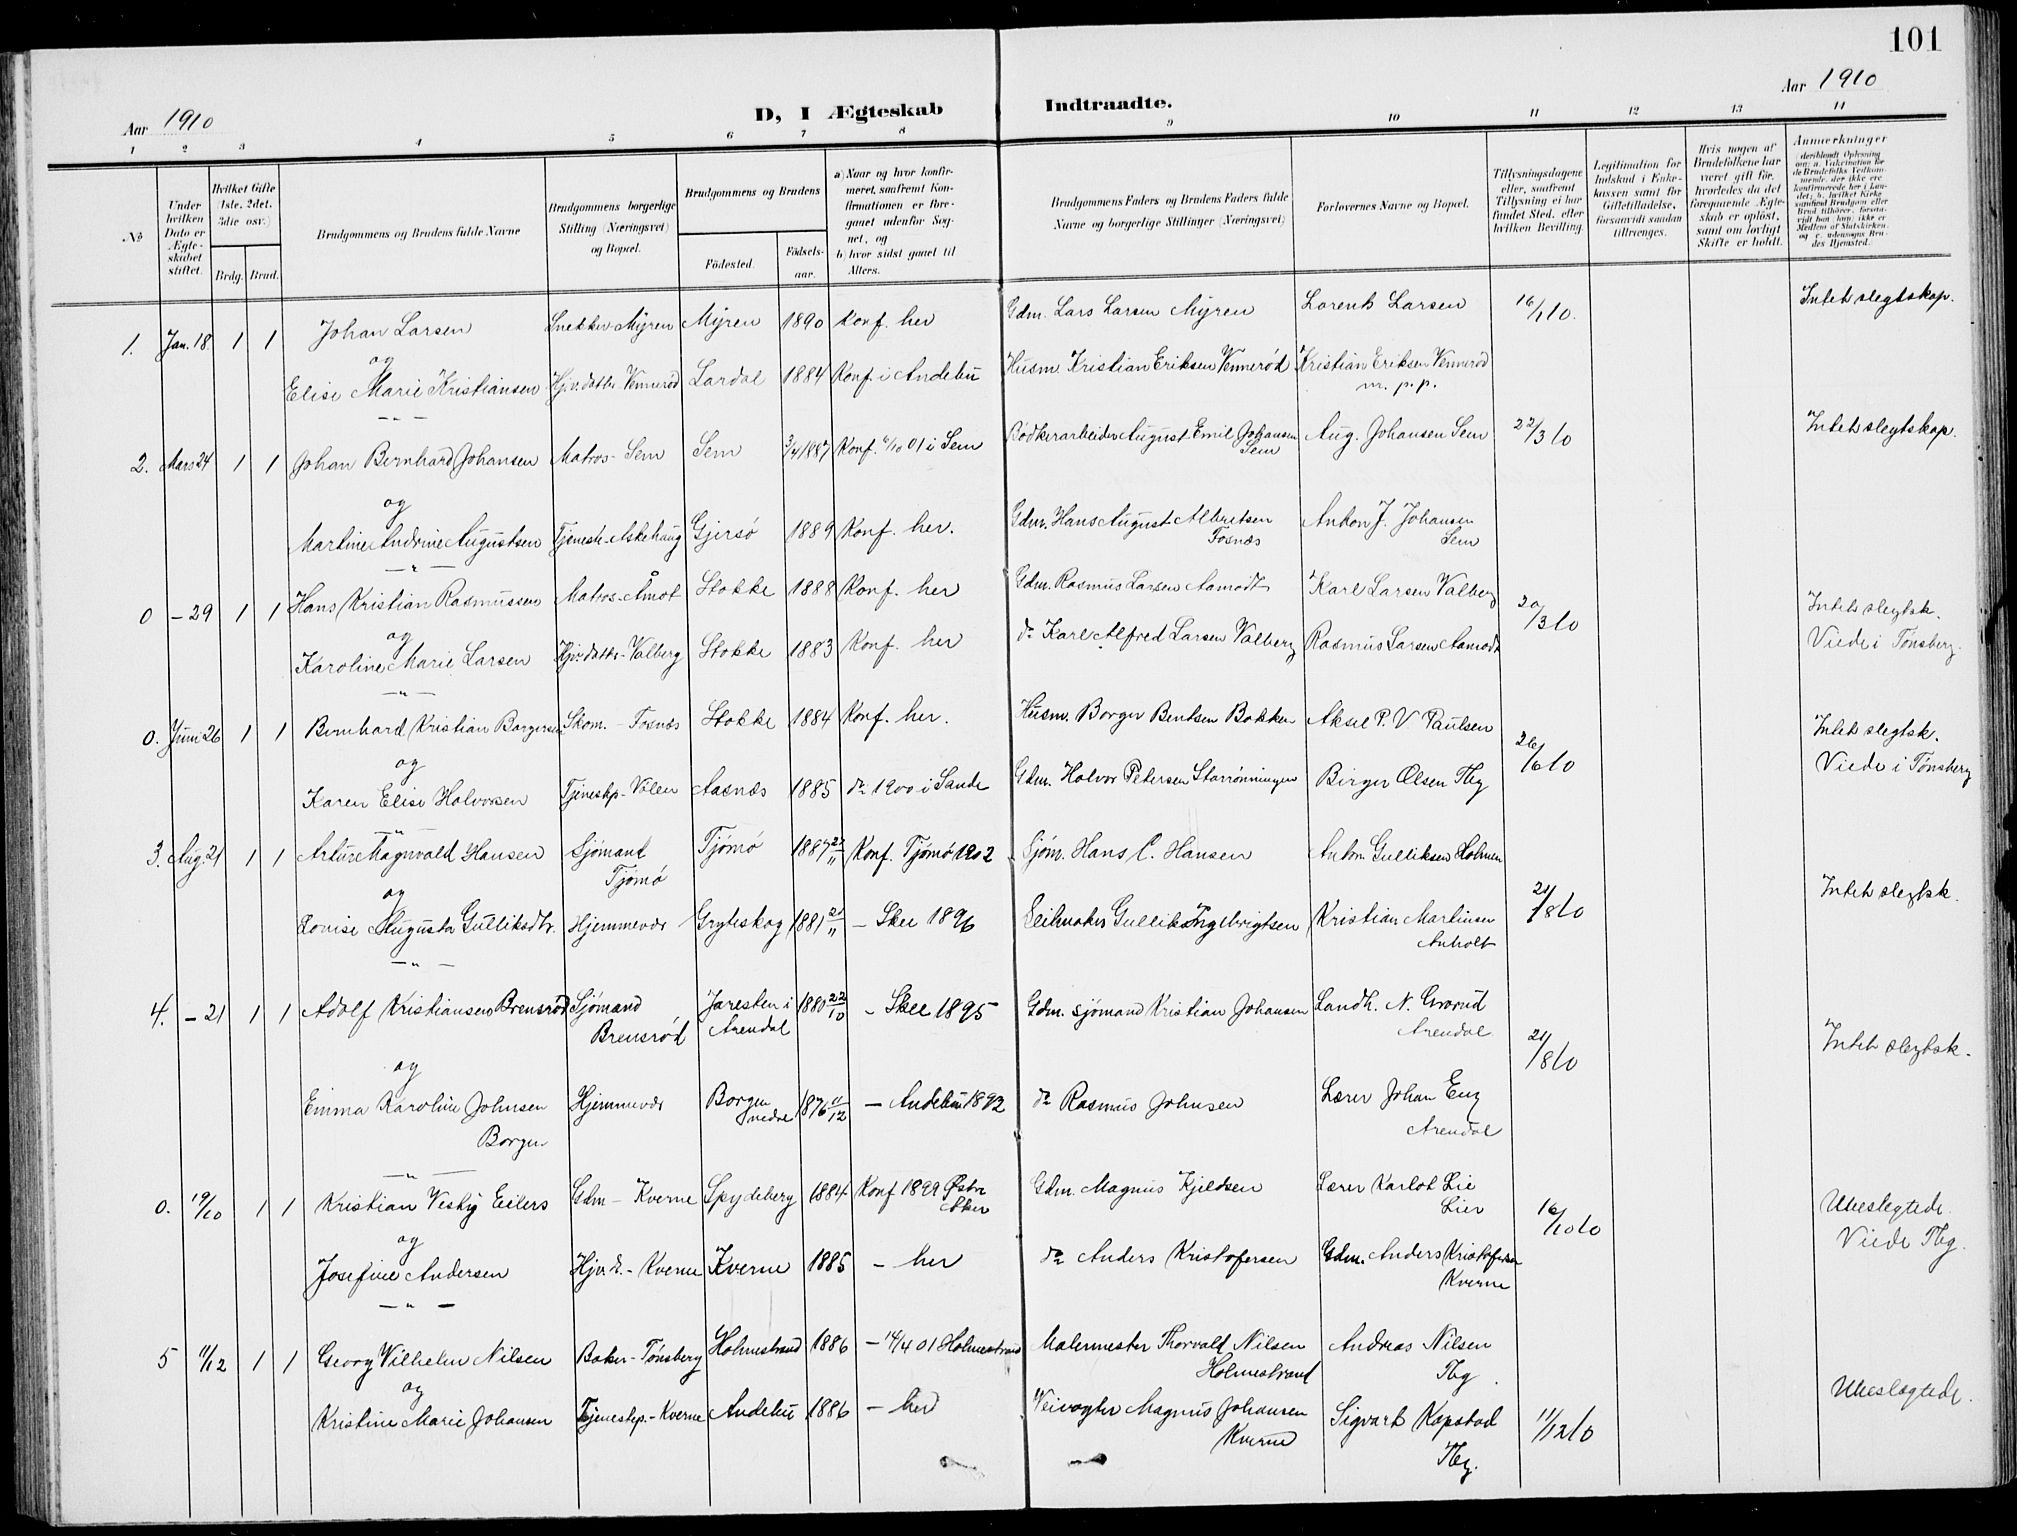 101
Aar 1910
Aar 1910
D, I Ægteskab Indtraadte.
1 2 3 4 5 6 7 8 9 10 11 12 13 14
No
Under hvilken Dato er Ægteskabet stiftet.
Hvilket Gifte (1ste, 2det, 3die osv.)
Brdg. Brud.
Brudgommens og Brudens fulde Navne
Brudgommens borgerlige Stilling (Næringsvei) og Bopæl.
Brudgommens og Brudens
Fødested.
Fødselsaar.
a) Naar og hvor konfirmeret, saafremt Konfirmationen er foregaaet udenfor Sognet, og
b) hvor sidst gaaet til Alters.
Brudgommens Faders og Brudens Faders fulde Navne og borgerlige Stillinger (Næringsvei)
Forlovernes Navne og Bopæl.
Tillysningsdagene eller, saafremt Tillysning ei har fundet Sted, efter hvilken Bevilling.
Legitimation for Indskud i Enkekassen samt for Giftetilladelse, forsaavidt saadan tiltrænges.
Hvis nogen af Brudefolkene har været gift før, hvorledes da det foregaaende Ægteskab er opløst, samt om lovligt Skifte er holdt.
Anmærkninger
1. Jan. 18. 1 1 Johan Larsen Snekker Myren Myren 1890 Konf. her Gdm. Lars Larsen Myren Lorents Larsen 16/1 10. Intet slegtskap.
og
Elise Marie Kristiansen Hjv. datter Vennerød Lardal 1884 Konf. i Andebu Husm. Kristian Eriksen Vennerød Kristian Eriksen Vennerød
m. p. p.
2. Mars 24 1 1 Johan Bernhard Johansen Matros - Sem Sem 3/4 1887 Konf. 6/10 01 i Sem Bødkerarbeider August Emil Johansen Sem Aug. Johansen Sem 22/3 10 Intet slegtskap.
og
Martine Andrine Augustsen Tjenest. Askehaug Gjersø 1889 Konf. her. Gdm. Hans August Albretsen Fosnæs Anton J. Johansen Sem
0 - 29 1 1 Hans Kristian Rasmussen Matros - Åmot Stokke 1888 Konf. her Gdm. Rasmus Larsen Aamodt Karl Larsen Valberg 20/3 10 Intet slegtsk.
og
Karoline Marie Larsen Hjv. datter - Valberg Stokke 1883 Konf. her do Karl Alfred Larsen Valberg Rasmus Larsen Aamodt Viede i Tønsberg.
0. Juni 26 1 1 Bernhard Kristian Borgersen Skom. - Fosnæs Stokke 1884 Konf. her. Husm. Borger Bentsen Bakken Aksel P. V. Paulsen 26/6 10 Intet slegtsk.
og
Karen Elise Halvorsen Tjenestp. - Volen Aasnæs 1885 do 1900 i Sande Gdm. Halvor Petersen Starrønningen Birger Olsen Tbg Viede i Tønsberg
3. Aug. 21 1 1 Arture Magnvald Hansen Sjømand Tjømø Tjømø 1887 27/11 Konf. Tjømø 1902 Sjøm. Hans C. Hansen Anton Gulliksen Holmen 21/8 10 Intet slegtsk.
og
Lovise Augusta Gulliksdtr. Hjemmevær Gryteskog 1881 21/11 - Skee 1896 Seilmaker Gullik Ingebrigtsen Kristian Martinsen Anholt
4. - 21 1 1 Adolf Kristiansen Brensrød Sjømand Brensrød Jaresten i Arendal 1880 22/10 - Skee 1895 Gdm. sjømand Kristian Johansen Landh. N. Grorud Arendal 21/8 10 Intet slegtsk.
og
Emma Karoline Johnsen Borgen Hjemmevær Borgen nedre 1876 11/12 - Andebu 1892 do Rasmus Johnsen Lærer Johan Eng Arendal
0. 19/10 1 1 Kristian Vesby Eilers Gdm - Kverne Spydeberg 1884 Konf 1899 Østre Aker Gdm. Magnus Kjeldsen Lærer Karlot Lie Lier 16/10 10 Ubeslegtede.
og
Josefine Andersen Hjv. d. - Kverne Kverne 1885 - her do Anders Kristofersen Gdm. Anders Kristofersen Kverne Viede Tbg.
5 11/12 1 1 Georg Vilhelm Nilsen Baker - Tønsberg Holmestrand 1886 - 14/4 01 Holmestrand Malermester Thorvald Nilsen Holmestrand Andreas Nilsen Tbg. 11/12 10 Ubeslægtede.
og
Kristine Marie Johansen Tjenestep. - Kverne Andebu 1886 - her Veivogter Magnus Johansen Kverne Sigvart Kopstad Tbg.